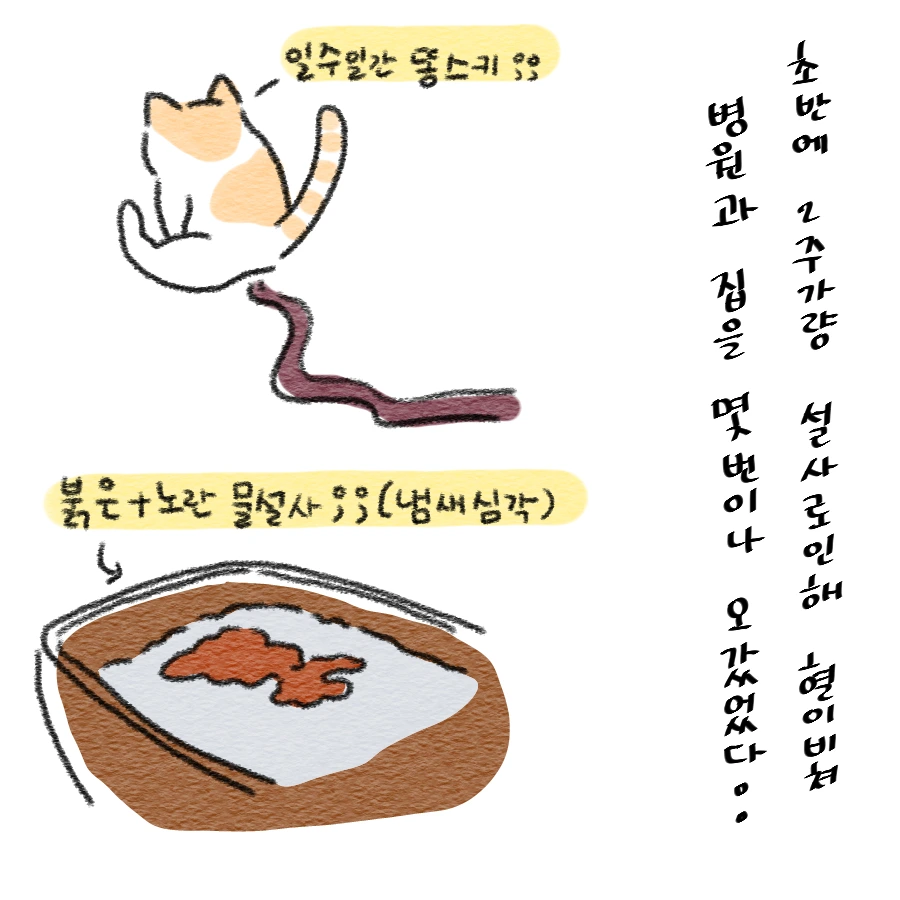 일주일간 똥스키 ;;
붉은+노란 물설사 ;;(냄새심각)
초반에 2주가량 설사로인해 혈이비쳐
병원과 집을 몇번이나 오갔었다..